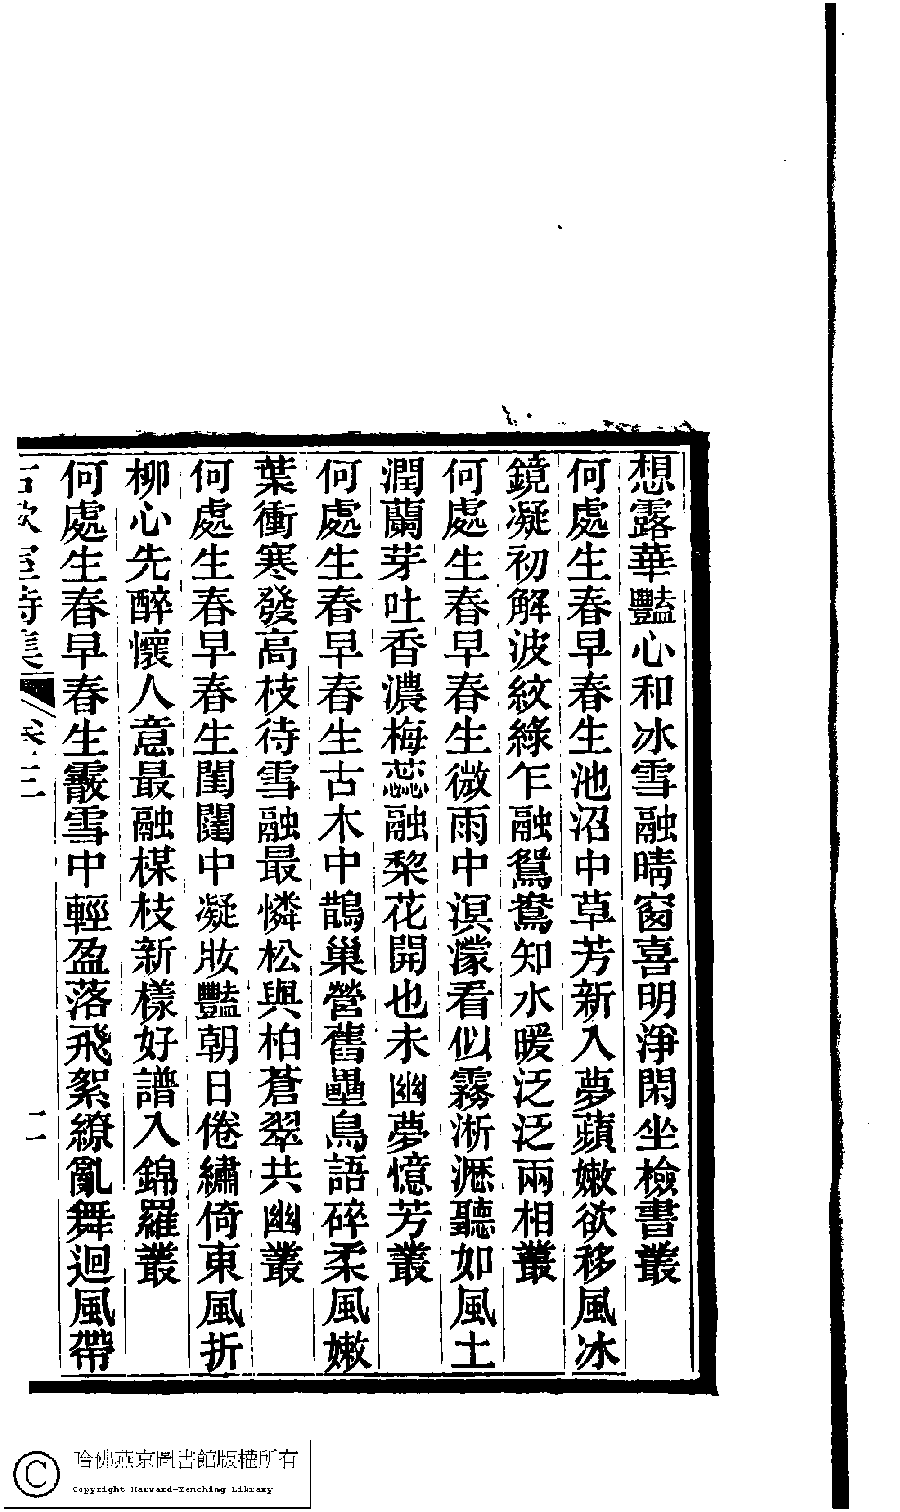 想露華豔心和冰雪融晴窗喜明淨閑坐檢書叢
何處生春早春生池沼中草芳新入夢蘋嫩欲移風冰
鏡凝初解波紋綠乍融鴛鴦知水暖泛泛兩相叢
何處生春早春生微雨中溟濛看似霧淅瀝聽如風土
潤蘭芽吐香濃梅蕊融棃花開也未幽夢憶芳叢
何處生春早春生古木中鵲巢營舊壘鳥語碎柔風嫩
葉衝寒發高枝待雪融最憐松與柏蒼翠共幽叢
何處生春早春生閨闥中凝妝豔朝日倦繡倚東風折
柳心先醉懷人意最融楳枝新樣好譜入錦羅叢
何處生春早春生霰雪中輕盈落飛絮繚亂舞迴風帶
詩集 卷二 二
哈佛燕京圖書館版權所有
Copyright Harvard-Yenching Library